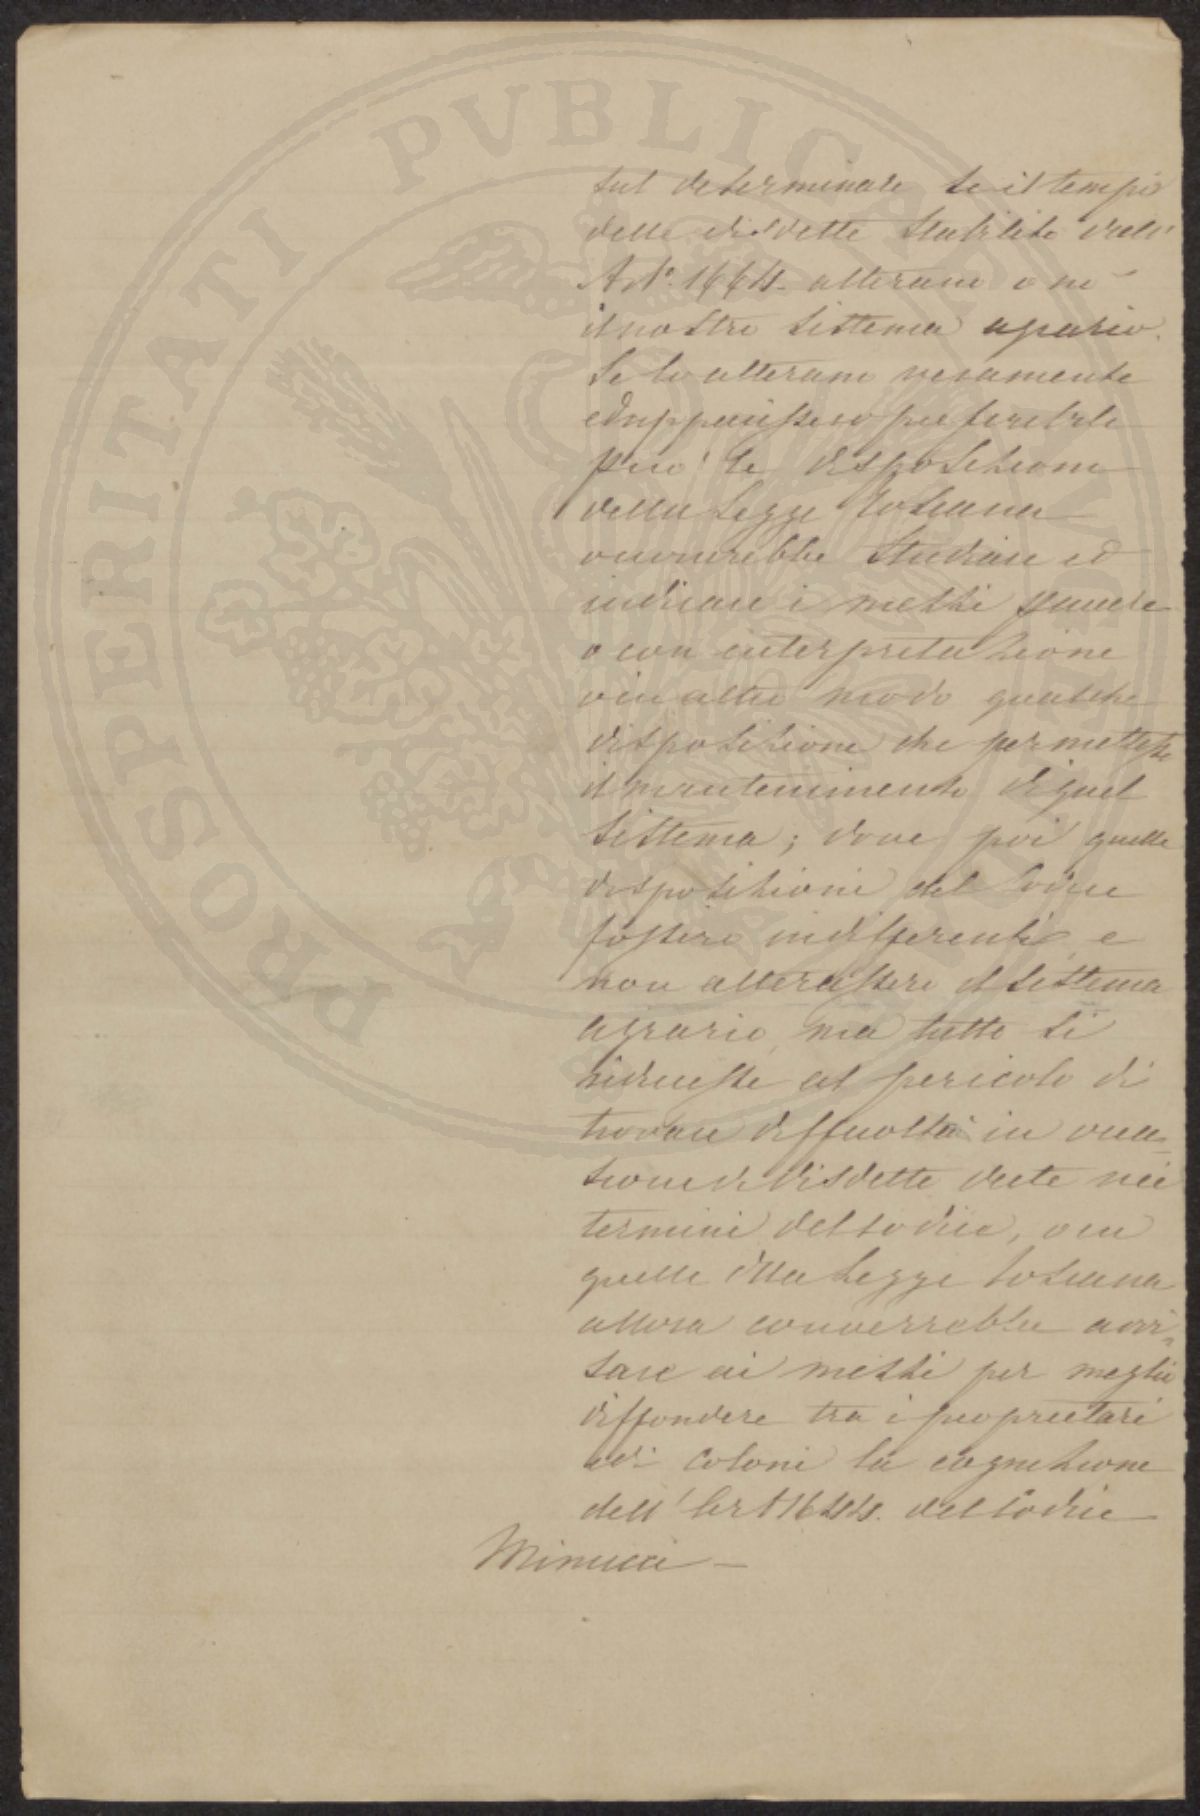 sul determinare se il tempo
delle disdette stabilito dall'
Art.º 1664. alterano o nò
il nostro sistema agrario.
Se lo alterano veramente
ed apparissero preferibili
perciò le disposizioni
della Legge Toscana
converrebbe studiare ed
indicare i mezzi
o con interpretazione
o in altro modo qualche
disposizione che permettesse
il mantenimento di quel
sistema; dove poi quelle
disposizioni del Codice
fossero indifferenti e
non alterassero il sistema
agrario, ma tutto si
riducesse al pericolo di
trovare difficoltà in occa=
sione di disdette date nei
termini del Codice, o in
quelli dlla Legge Toscana
allora converrebbe avvi=
sare ai mezzi per meglio
diffondere tra i proprietari
ed i coloni la cognizione
dell'Art 1644. del Codice
Minucci —
PROSPERITATI PVBLICAE